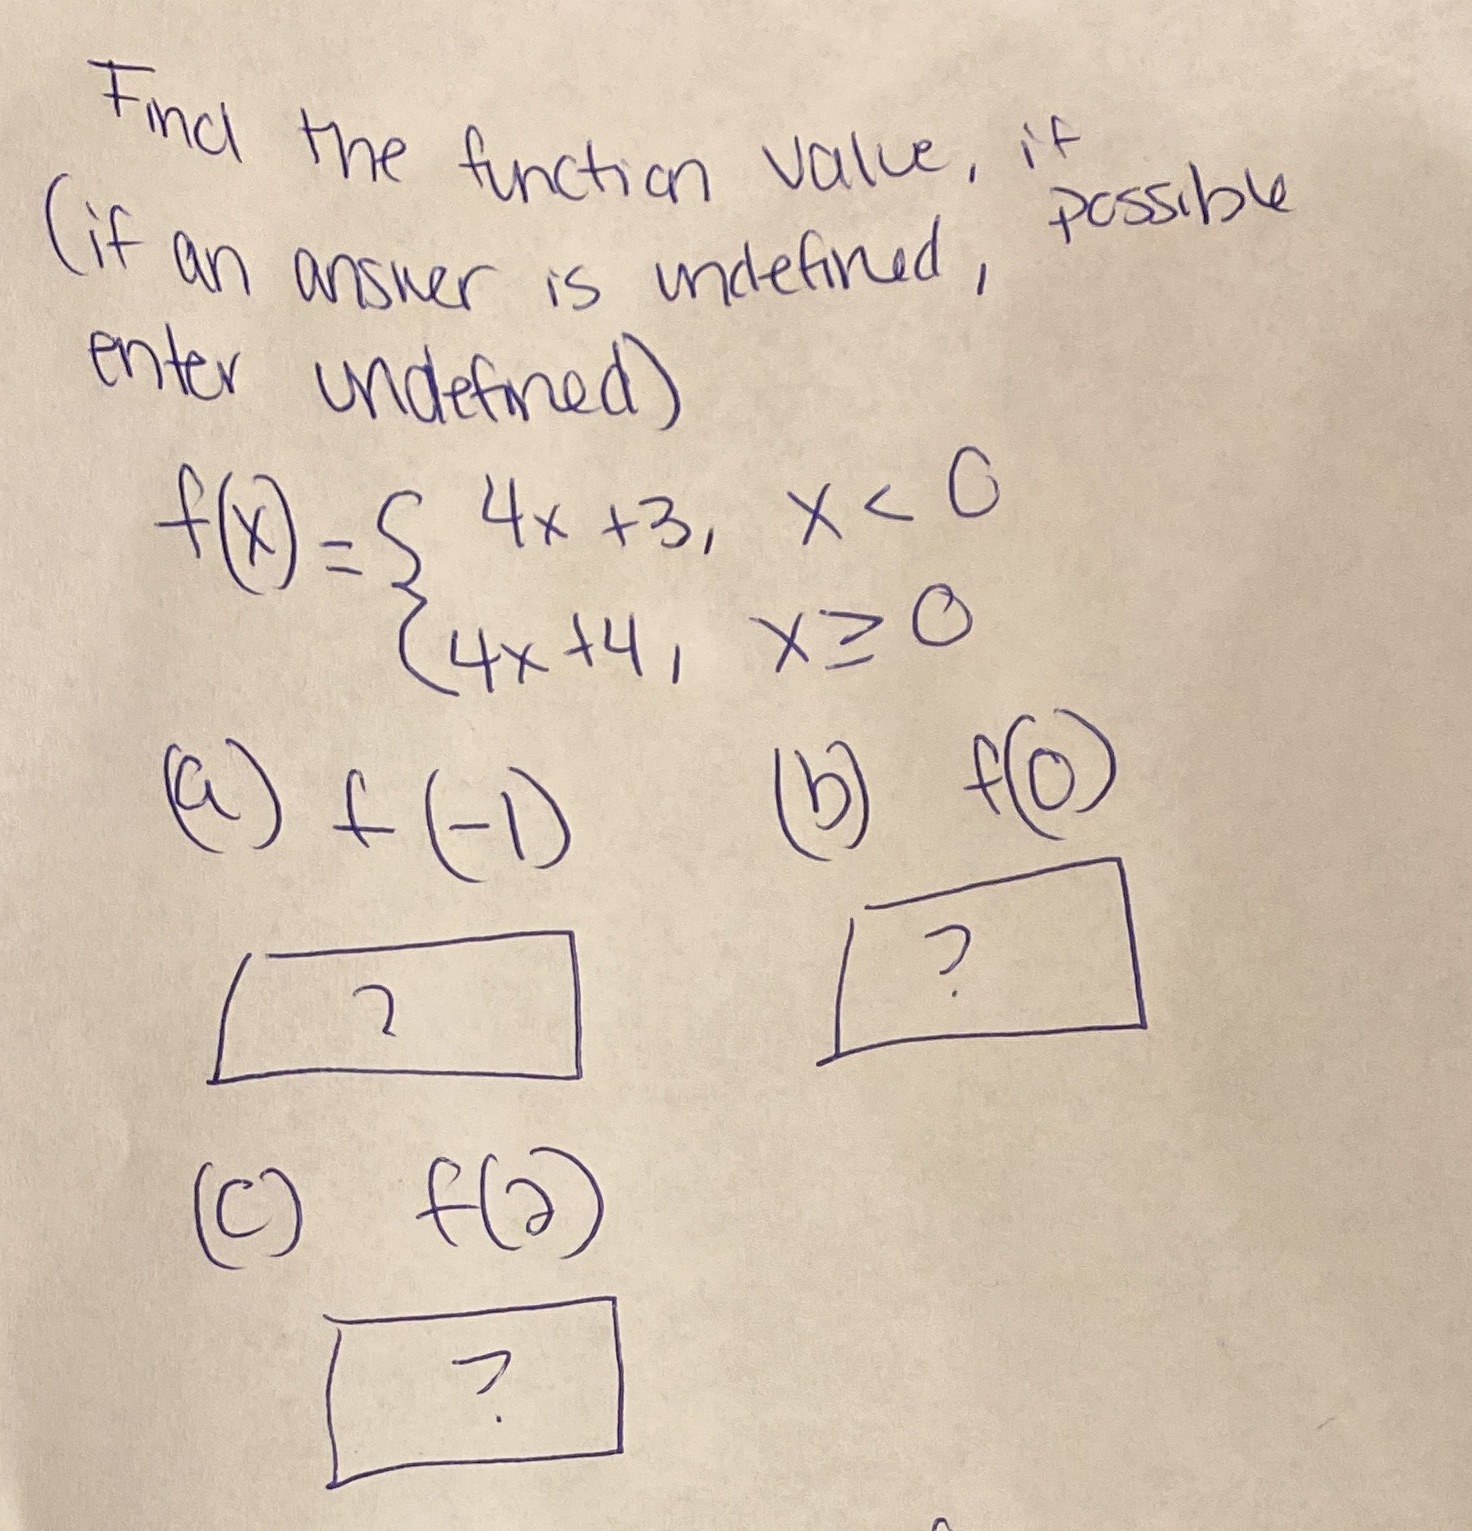 Find the function value, if possible
(if an answer is undefined,
enter undefined)
f(x) = { 4x + 3, x < 0
4x + 4, x ≥ 0
(a) f(-1) (b) f(0)
? ?
(c) f(2)
?